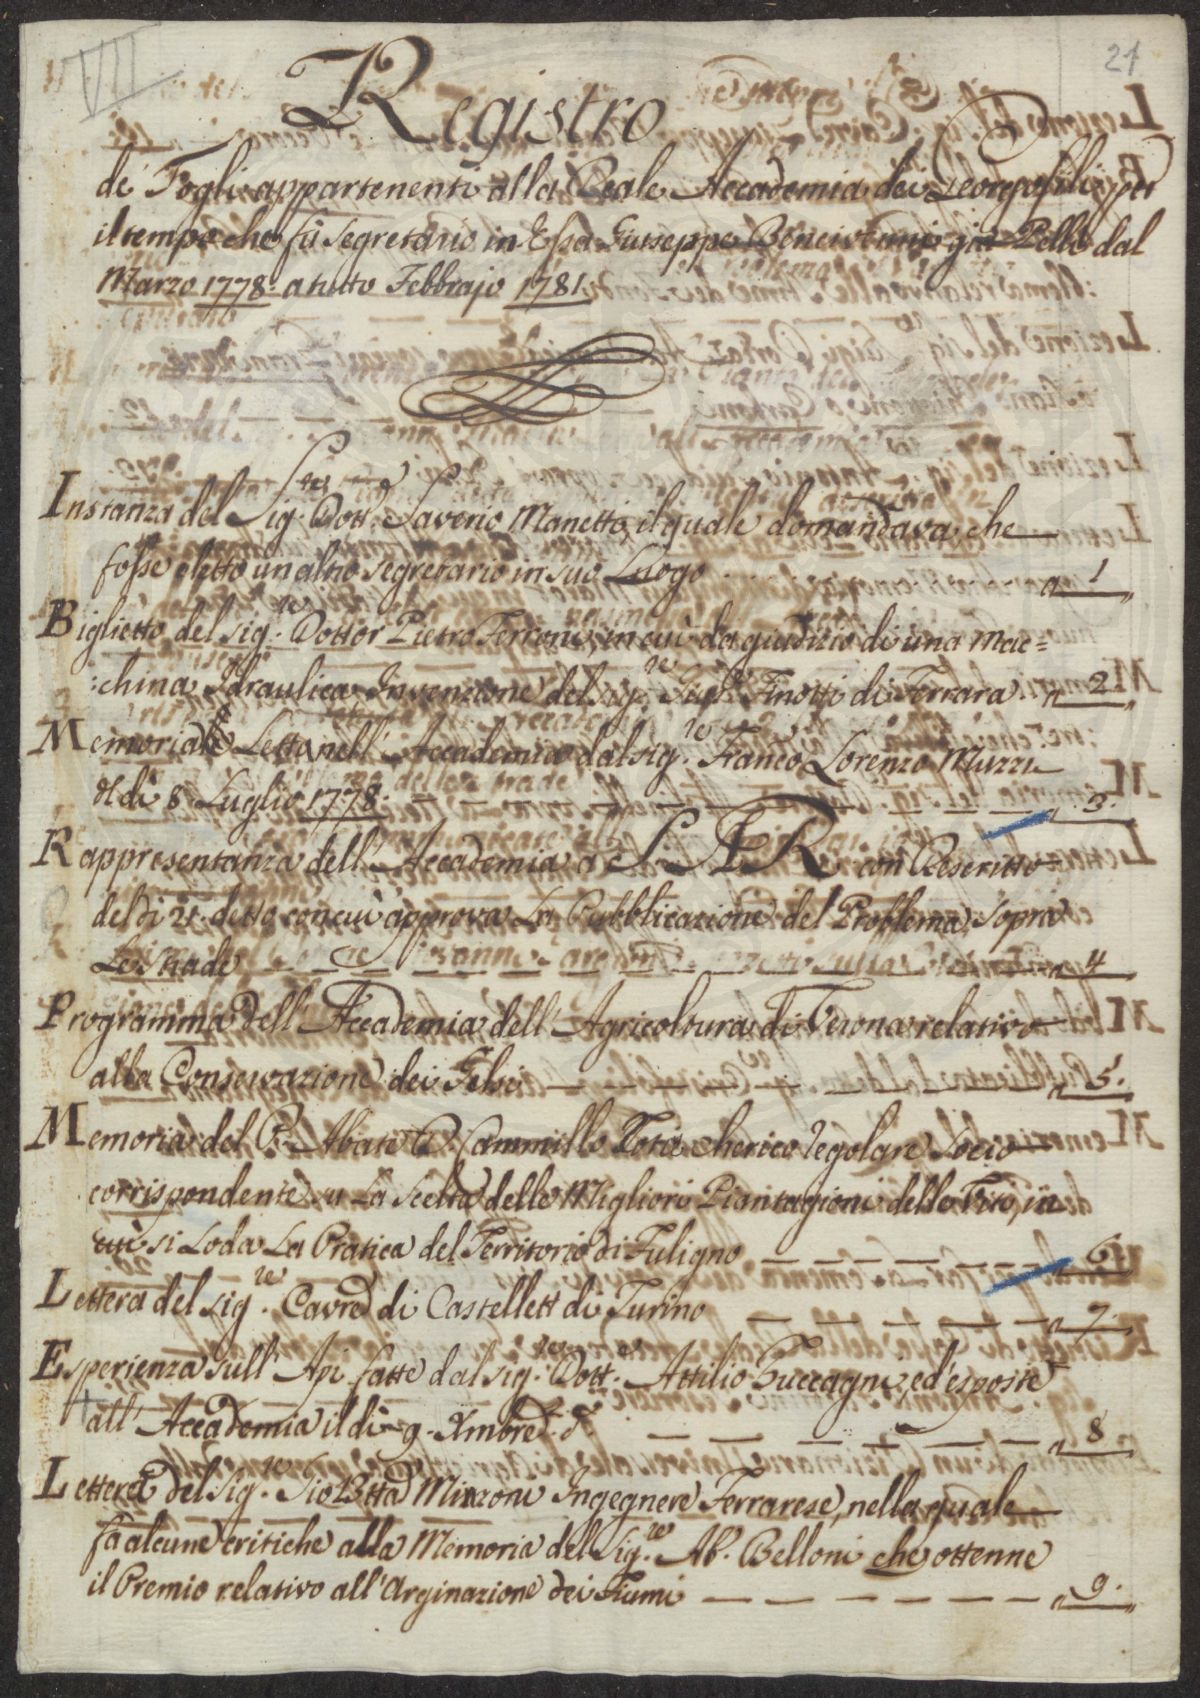 VII
21
Registro
de' Fogli appartenenti alla Reale Accademia dei Georgofili per
il tempo che fù Segretario in Essa Giuseppe Bencivenni già Pelli dal
Marzo 1778. a tutto Febbrajo 1781.
Instanza del Sig.re Dott.e Saverio Manetti, il quale domandava che
fosse eletto un altro Segretario in suo Luogo a 1
Biglietto del Sig.re Dottor Pietro Ferroni, in cui dà giudizio di una Mac=
:china Idraulica Invenzione del Sig.re Finotti di Ferrara. 2.
Memoria Letta nell' Accademia dal Sig.re Franco Lorenzo Muzzi
il dì 8. Luglio 1778. 3.
Rappresentanza dell' Accademia a S A R con Rescritto
del dì 21. detto con cui approva La Pubblicazione del Problema Sopra
Le Strade 4
Programma dell' Accademia dell' Agricoltura di Verona relativo
alla Conservazione dei Gelsi 5.
Memoria del P. Abate D. Cammillo Toti Cherico Regolare Socio
corrispondente su La Scelta delle Migliori Piantagioni delle Viti, in
cui si Loda La Pratica del Territorio di Fuligno 6.
Lettera del Sig.re Cavre di Castellett di Turino 7.
Esperienza sull' Api fatte dal Sig.re Dott.e Attilio Zuccagni, ed esposte
all' Accademia il dì 9. Xmbre d.o 8
Lettera del Sig.re Gio Btta Minzoni Ingegnere Ferrarese, nella quale
fa alcune critiche alla Memoria del Sig.re Ab.e Belloni che ottenne
il Premio relativo all' Arginazione dei Fiumi 9.